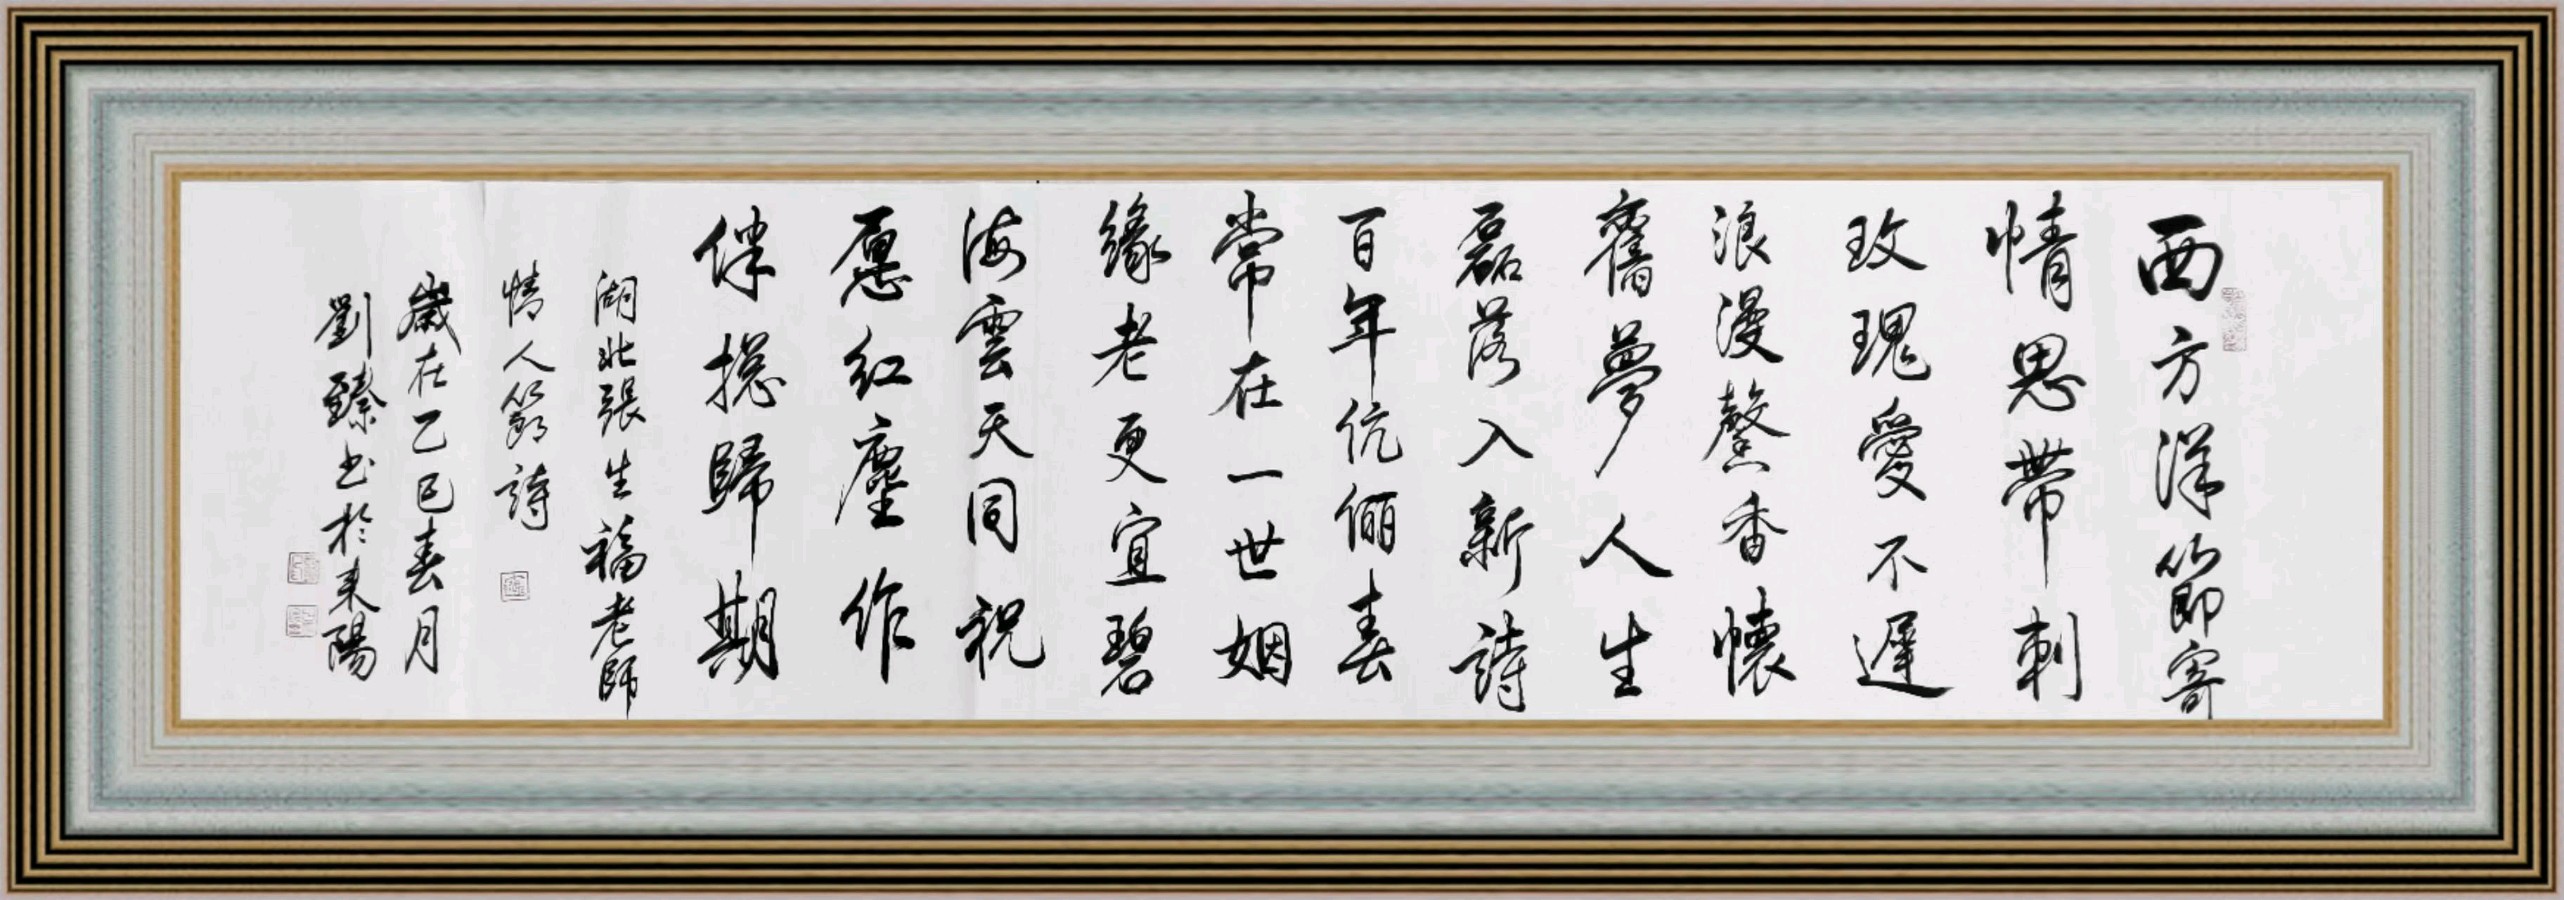 西方洋節寄
情思帶刺
玫瑰愛不遲
浪漫馨香懷
舊夢人生
磊落入新詩
百年伉儷春
常在一世姻
緣老更宜碧
海雲天同祝
愿紅塵作
伴攬歸期
湖北張生福老師
情人節詩
歲在乙巳春月
劉臻书於耒陽